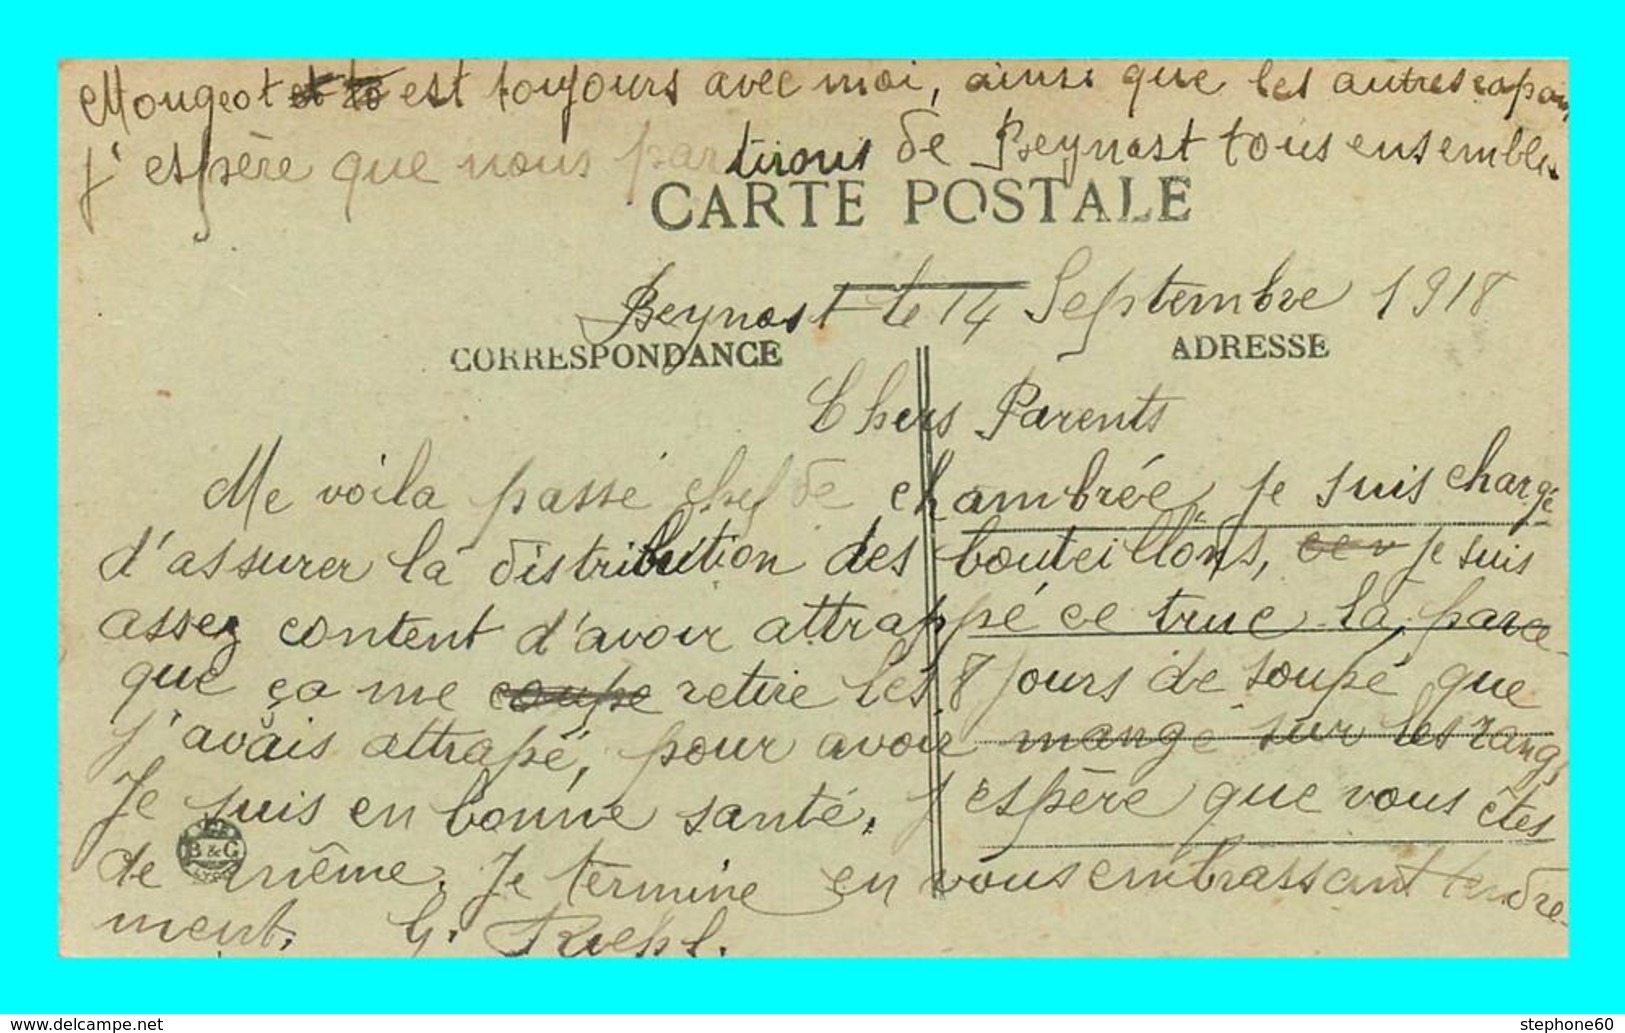 Mougeot est toujours avec moi, ainsi que les autres copains
J'espère que nous partirons de Beynost tous ensembles.
CARTE POSTALE
Beynost le 14 Septembre 1918
CORRESPONDANCE ADRESSE
Chers Parents
Me voila passé chef de chambrée, je suis chargé
d'assurer la distribution des bouteillons, je suis
assez content d'avoir attrappé ce truc là parce
que ça me coupe retire les 8 jours de soupé que
j'avais attrapé, pour avoir mangé sur les rangs
Je suis en bonne santé, j'espère que vous êtes
B & G
de même. Je termine en vous embrassant tendre-
ment. G.
stephone60